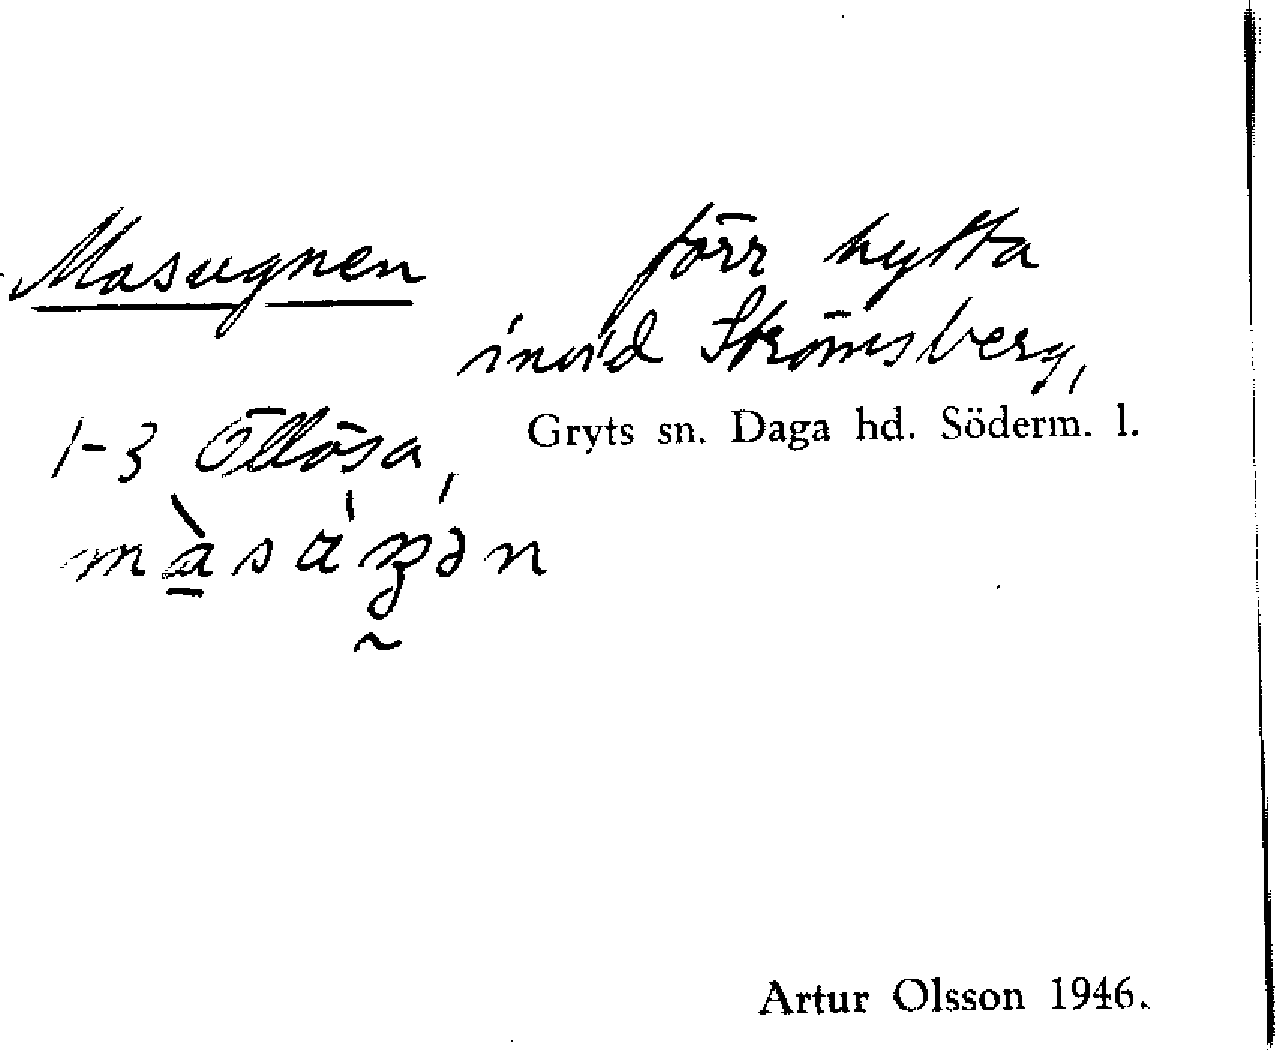 Masugnen förr hytta
invid Strömsberg,
1-3 Öllösa, Gryts sn. Daga hd. Söderm. l.
Artur Olsson 1946.